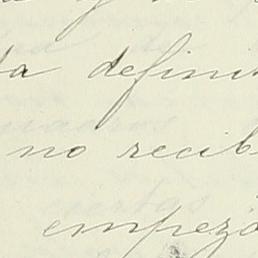 da definit
no recib
empezó